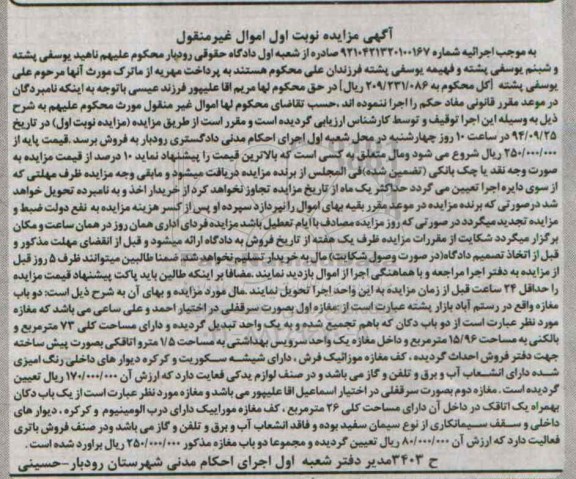 آگهی مزایده نوبت اول اموال غیرمنقول
به موجب اجرائیه شماره ۹۲۱۰۴۲۱۳۲۰۱۰۰۱۶۷ صادره از شعبه اول دادگاه حقوقی رودبار محکوم علیهم ناهید یوسفی پشته
و شبنم یوسفی پشته و فهیمه یوسفی پشته فرزندان علی محکوم هستند به پرداخت مهریه از ماترک مورث آنها مرحوم علی
یوسفی پشته (کل محکوم به ۲۰۹/۲۳۱/۰۸۶ ریال) در حق محکوم لها مریم اقا علیپور فرزند عیسی با توجه به اینکه نامبردگان
در موعد مقرر قانونی مفاد حکم را اجرا ننموده اند ،حسب تقاضای محکوم لها اموال غیر منقول مورث محکوم علیهم به شرح
ذیل به وسیله این اجرا توقیف و توسط کارشناس ارزیابی گردیده است و مقرر است از طریق مزایده (مزایده نوبت اول) در تاریخ
۹۴/۰۹/۲۵ در ساعت ۱۰ روز چهارشنبه در محل شعبه اول اجرای احکام مدنی دادگستری رودبار به فروش برسد .قیمت پایه از
۲۵۰/۰۰۰/۰۰۰ ریال شروع می شود ومال متعلق به کسی است که بالاترین قیمت را پیشنهاد نماید ۱۰ درصد از قیمت مزایده به
صورت وجه نقد یا چک بانکی (تضمین شده) فی المجلس از برنده مزایده دریافت میشود و مابقی وجه مزایده ظرف مهلتی که
از سوی دایره اجرا تعیین می گردد حداکثر یک ماه از تاریخ مزایده تجاوز نخواهد کرد از خریدار اخذ و به نامبرده تحویل خواهد
شد درصورتی که برنده مزایده در موعد مقرر بقیه بهای اموال را نپردازد سپرده او پس از کسر هزینه مزایده به نفع دولت ضبط و
مزایده تجدید میگردد در صورتی که روز مزایده مصادف با ایام تعطیل باشد مزایده فردای اداری همان روز در همان ساعت و مکان
برگزار میگردد شکایت از مقررات مزایده ظرف یک هفته از تاریخ فروش به دادگاه ارائه میشود و قبل از انقضای مهلت مذکور و
قبل از اتخاذ تصمیم دادگاه(در صورت وصول شکایت) مال به خریدار تسلیم نخواهد شد. ضمنا طالبین میتوانند ظرف ۵ روز قبل
از مزایده به دفتر اجرا مراجعه و با هماهنگی اجرا از اموال بازدید نمایند.مضافا بر اینکه طالبن باید پاکت پیشنهاد قیمت مزایده
را حداقل ۲۴ ساعت قبل از زمان مزایده به این واحد اجرا تحویل نمایند .مال مورد مزایده و بهای آن به شرح ذیل است: دو باب
مغازه واقع در رستم آباد بازار پشته عبارت است از مغازه اول بصورت سرقفلی در اختیار احمد و علی ساعی می باشد که مغازه
مورد نظر عبارت است از دو باب دکان که باهم تجمیع شده و به یک واحد تبدیل گردیده و دارای مساحت کلی ۷۳ مترمربع و
بالکنی به مساحت ۱۵/۹۶ مترمربع و داخل مغازه یک واحد سرویس بهداشتی به مساحت ۱/۵ مترو اتاقکی بصورت پیش ساخته
جهت دفتر فروش احداث گردیده ، کف مغازه موزائیک فرش ، دارای شیشه سکوریت و کرکره دیوار های داخلی رنگ امیزی
شده دارای انشعاب آب و برق و تلفن و گاز می باشد و در صنف لوازم یدکی فعالیت دارد که ارزش آن ۱۷۰/۰۰۰/۰۰۰ ریال تعیین
گردیده است . مغازه دوم بصورت سرقفلی در اختیار اسماعیل اقا علیپور می باشد و مغازه مورد نظر عبارت است از یک باب دکان
بهمراه یک اتاقک در داخل آن دارای مساحت کلی ۲۶ مترمربع ، کف مغازه موراییک دارای درب الومینیوم و کرکره ، دیوار های
داخلی و سقف سیمانکاری از نوع سیمان سفید بوده و فاقد انشعاب آب و برق و تلفن و گاز می باشد ودر صنف فروش باتری
فعالیت دارد که ارزش آن ۸۰/۰۰۰/۰۰۰ ریال تعیین گردیده و مجموعا دو باب مغازه مذکور ۲۵۰/۰۰۰/۰۰۰ ریال براورد شده است .
ح ۳۴۰۳مدیر دفتر شعبه اول اجرای احکام مدنی شهرستان رودبار-حسینی